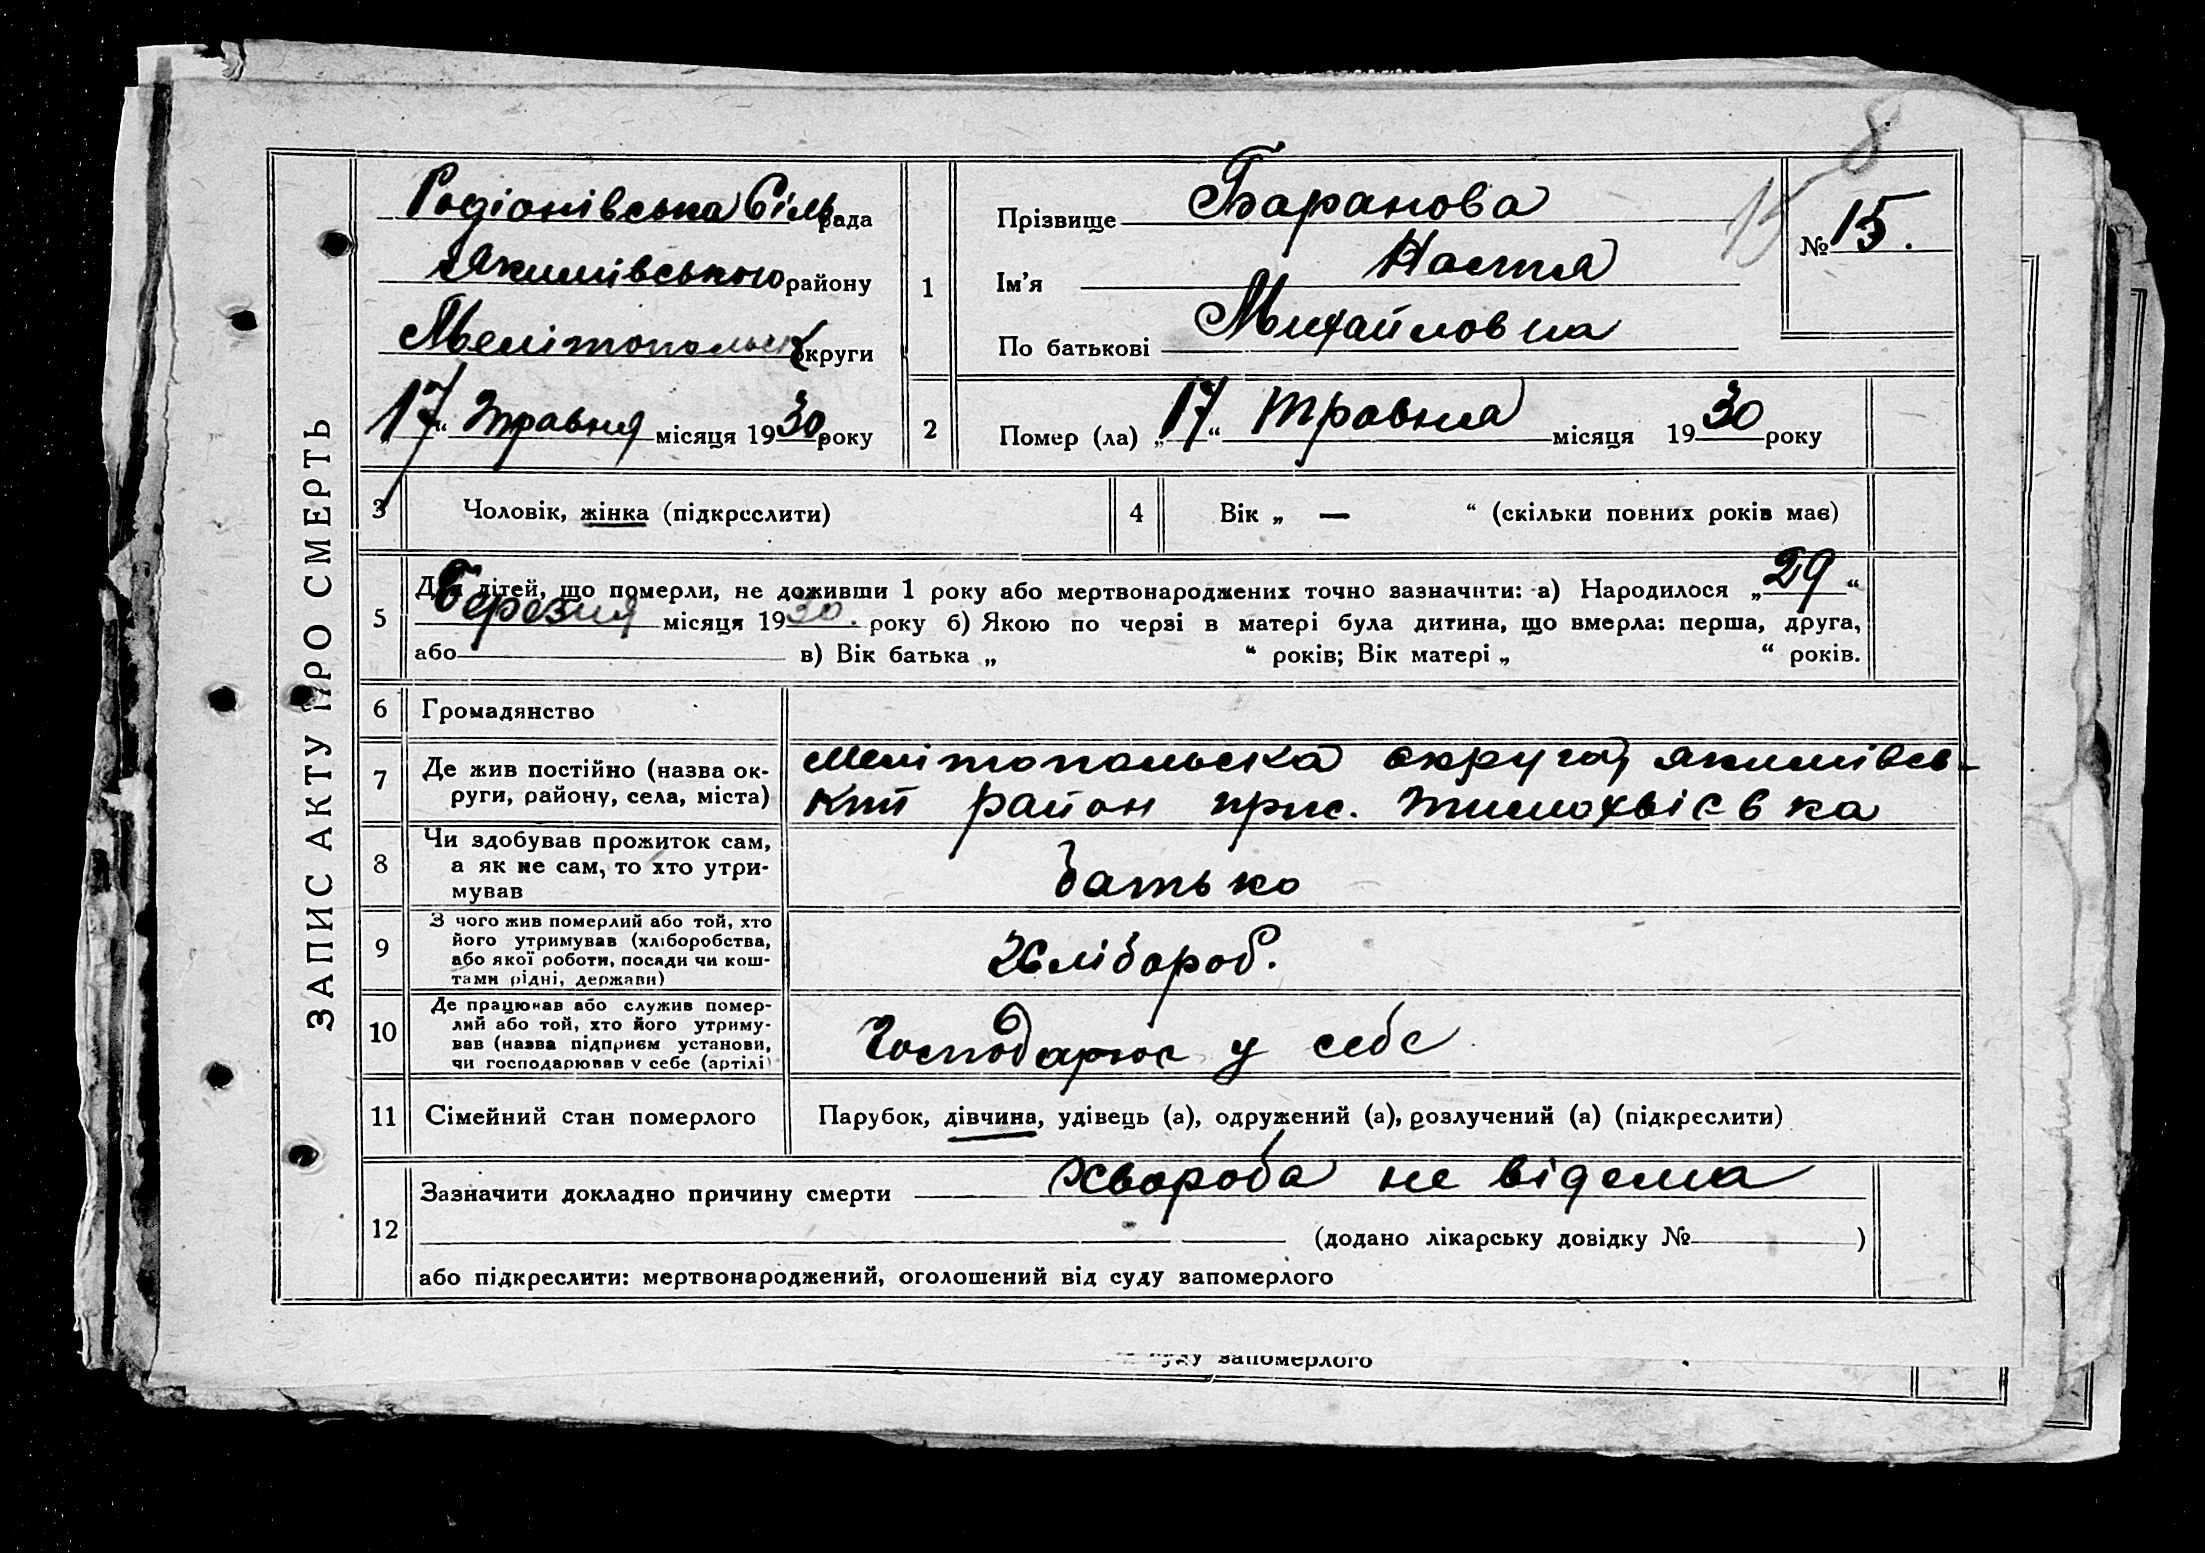 8
15
ЗАПИС АКТУ ПРО СМЕРТЬ
Родіонівська Сільрада
Якимівського району
Мелітопольськ округи
17 “ Травня місяця 1930 року
1
Прізвище Баранова
Ім’я Настя
По батькові Михайловна
№ 15.
2
Помер (ла) „17“ травня місяця 1930 року
3 Чоловік, жінка (підкреслити)
4 Вік „ — “ (скільки повних років має)
5
Для дітей, що померли, не доживши 1 року або мертвонароджених точно зазначити: а) Народилося „29“
Березня місяця 1930. року б) Якою по черзі в матері була дитина, що вмерла: перша, друга,
або в) Вік батька „ “ років; Вік матері „ “ років.
6 Громадянство
7 Де жив постійно (назва ок-
руги, району, села, міста)
Мелітопольська округа, якимівсь-
кий район прис. Тимохвієвка
8 Чи здобував прожиток сам,
а як не сам, то хто утри-
мував
батько
9 З чого жив померлий або той, хто
його утримував (хліборобства,
або якої роботи, посади чи кош-
тами рідні, держави)
Хлібороб.
10 Де працював або служив помер-
лий або той, хто його утриму-
вав (назва підприєм установи,
чи господарював у себе (артілі)
Господарює у себе
11 Сімейний стан померлого
Парубок, дівчина, удівець (а), одружений (а), розлучений (а) (підкреслити)
12
Зазначити докладно причину смерти хвороба не відома
(додано лікарську довідку № )
або підкреслити: мертвонароджений, оголошений від суду запомерлого
суду запомерлого